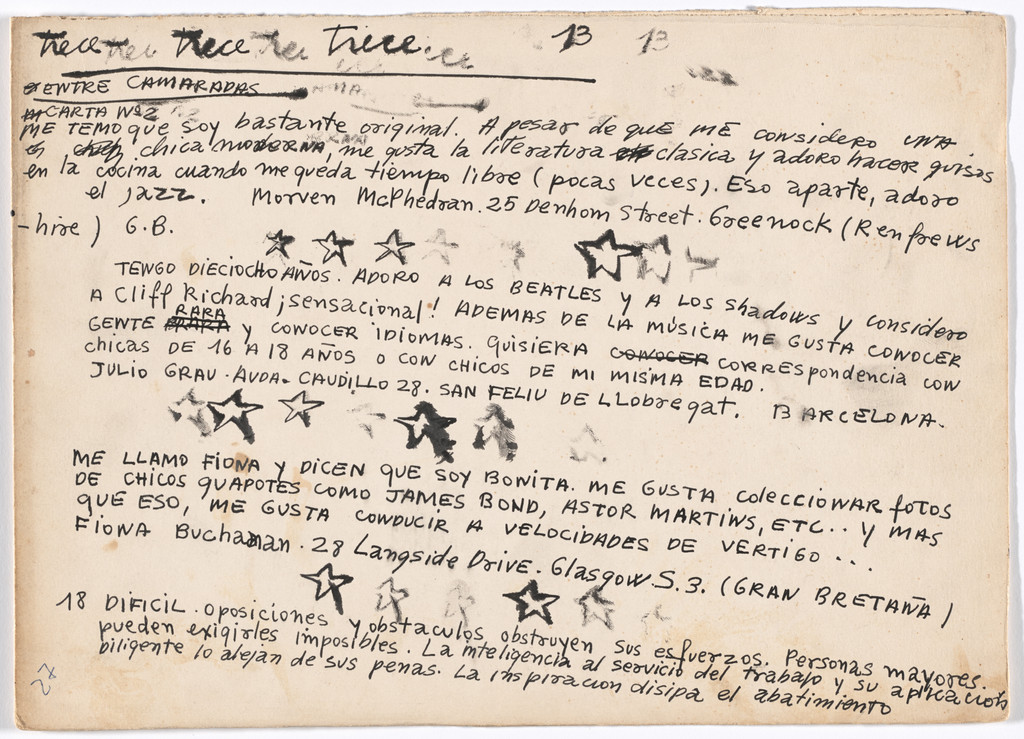 trece trece trece trece trece trece. 13 13
ENTRE CAMARADAS
CARTA Nº2
ME TEMO que soy bastante original. A pesar de que ME considero UNA
chica MODERNA, me gusta la literatura clasica y adoro hacer guisos
en la cocina cuando me queda tiempo libre (pocas veces). Eso aparte, adoro
el jazz. Morven McPhedran. 25 Denhom Street. Greenock (Renfrews
-hire) G.B.
TENGO DIECIOCHO AÑOS. ADORO A LOS BEATLES y A LOS Shadows y considero
A Cliff Richard ¡sensacional! ADEMAS DE LA MÚSICA ME GUSTA CONOCER
RARA
GENTE RARA y CONOCER IDIOMAS. QUISIERA CONOCER CORRESpondencia CON
chicas DE 16 A 18 AÑOS O CON CHICOS DE MI MISMA EDAD.
JULIO GRAU. AVDA. CAUDILLO 28. SAN FELIU DE LLobregat. BARCELONA.
ME LLAMO FIONA y DICEN QUE SOY BONITA. ME GUSTA COLECCIONAR fotos
DE CHICOS GUAPOTES COMO JAMES BOND, ASTOR MARTINS, ETC.. y MAS
QUE ESO, ME GUSTA CONDUCIR A VELOCIDADES DE VERTIGO ...
FIONA Buchanan. 28 Langside Drive. Glasgow S.3. (GRAN BRETAÑA)
18 DIFICIL. oposiciones y obstaculos obstruyen sus esfuerzos. Personas mayores
pueden exigirles imposibles. La inteligencia al servicio del trabajo y su aplicación
diligente lo alejan de sus penas. La inspiracion disipa el abatimiento